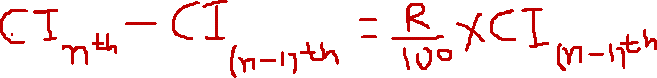 CI_{nth} - CI_{(n-1)th} = \frac{R}{100} × CI_{(n-1)th}